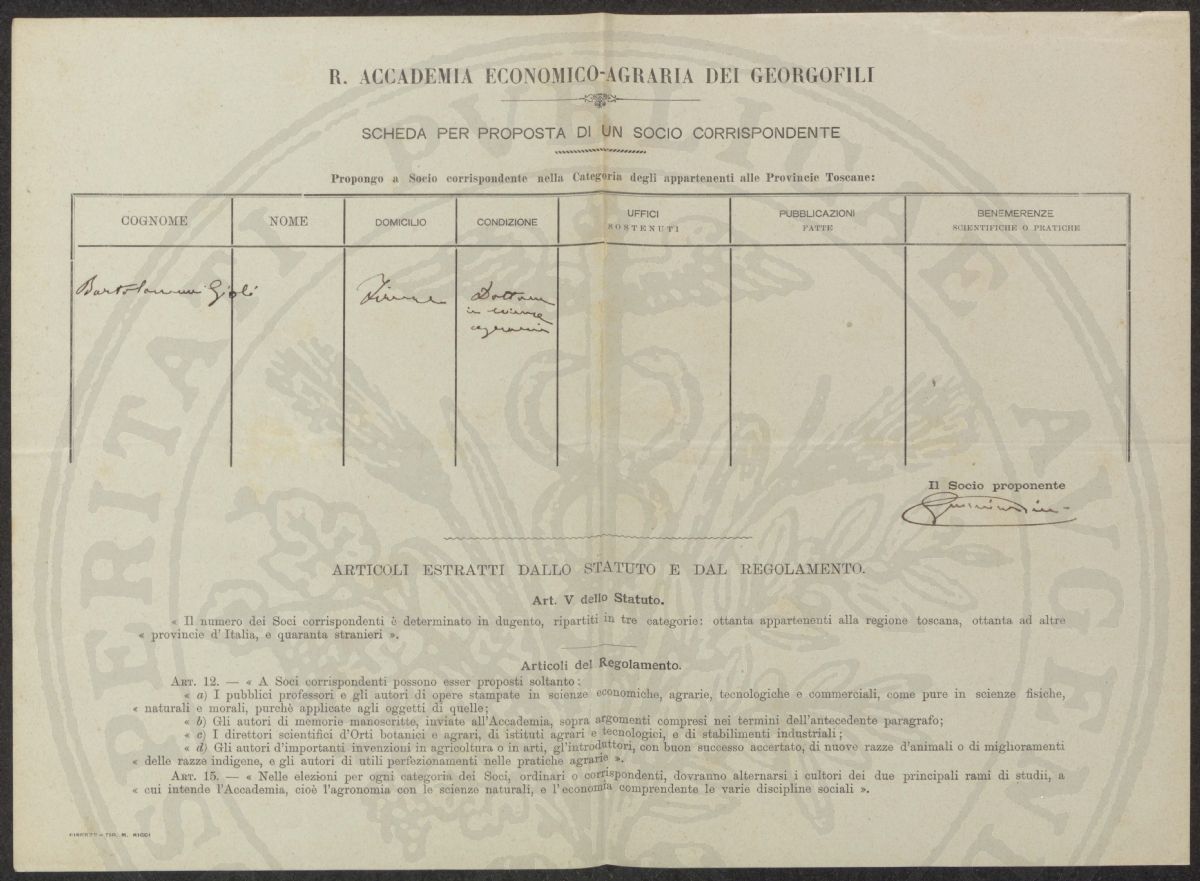 R. ACCADEMIA ECONOMICO-AGRARIA DEI GEORGOFILI
SCHEDA PER PROPOSTA DI UN SOCIO CORRISPONDENTE
Propongo a Socio corrispondente nella Categoria degli appartenenti alle Provincie Toscane:
COGNOME NOME DOMICILIO CONDIZIONE UFFICI SOSTENUTI PUBBLICAZIONI FATTE BENEMERENZE SCIENTIFICHE O PRATICHE
Bartolommei Gioli Firenze Dottore
in scienze
agrarie
Il Socio proponente
ARTICOLI ESTRATTI DALLO STATUTO E DAL REGOLAMENTO.
Art. V dello Statuto.
« Il numero dei Soci corrispondenti è determinato in dugento, ripartiti in tre categorie: ottanta appartenenti alla regione toscana, ottanta ad altre
« provincie d' Italia, e quaranta stranieri ».
Articoli del Regolamento.
ART. 12. — « A Soci corrispondenti possono esser proposti soltanto:
« a) I pubblici professori e gli autori di opere stampate in scienze economiche, agrarie, tecnologiche e commerciali, come pure in scienze fisiche,
« naturali e morali, purchè applicate agli oggetti di quelle;
« b) Gli autori di memorie manoscritte, inviate all'Accademia, sopra argomenti compresi nei termini dell'antecedente paragrafo;
« c) I direttori scientifici d'Orti botanici e agrari, di istituti agrari e tecnologici, e di stabilimenti industriali;
« d) Gli autori d'importanti invenzioni in agricoltura o in arti, gl'introduttori, con buon successo accertato, di nuove razze d'animali o di miglioramenti
« delle razze indigene, e gli autori di utili perfezionamenti nelle pratiche agrarie ».
ART. 15. — « Nelle elezioni per ogni categoria dei Soci, ordinari o corrispondenti, dovranno alternarsi i cultori dei due principali rami di studii, a
« cui intende l'Accademia, cioè l'agronomia con le scienze naturali, e l'economia comprendente le varie discipline sociali ».
FIRENZE - TIP. M. RICCI
PROSPERITATI PVBLICAE AVGENDAE